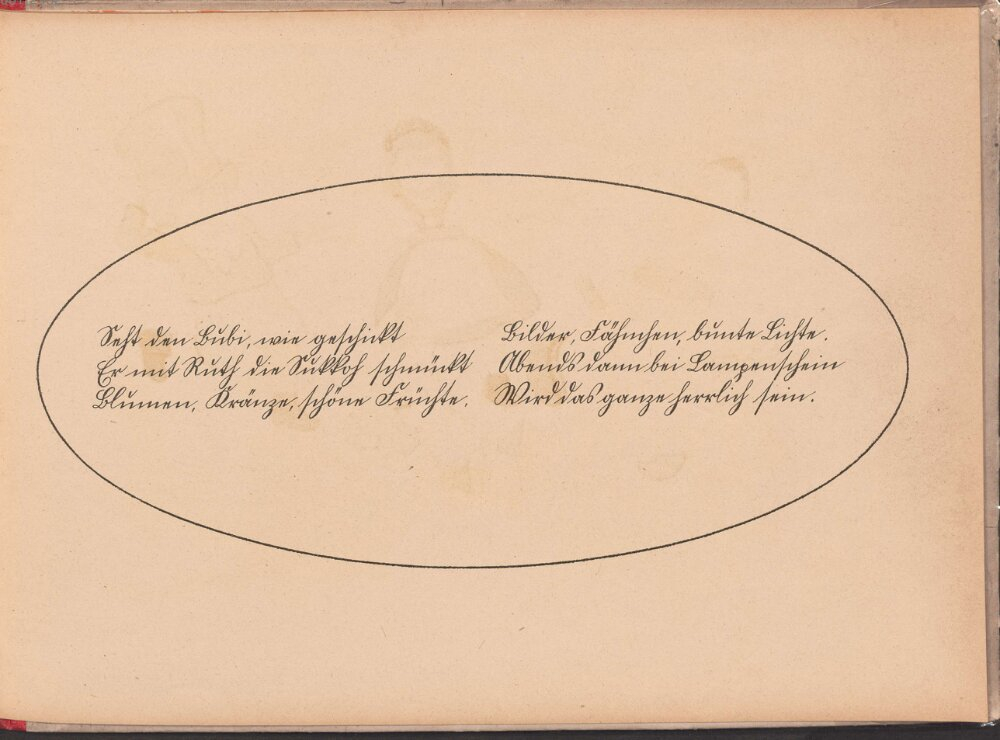 Seht den Bubi, wie geschickt
Er mit Ruth die Sukkoh schmückt
Blumen, Kränze, schöne Früchte,
Bilder, Fähnchen, bunte Lichte.
Abends dann bei Lampenschein
Wird das ganze herrlich sein.